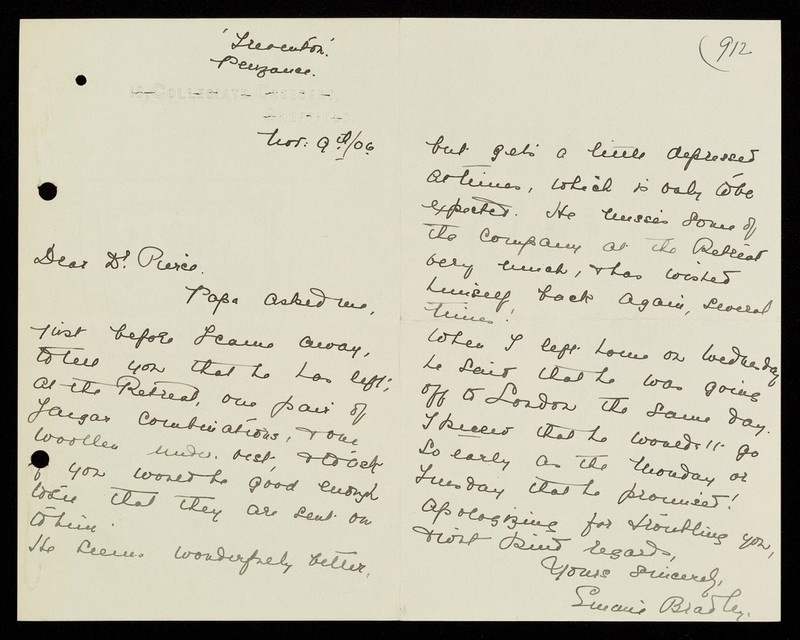 'Treventon'.
Penzance.
15, COLLEGIATE CRESCENT,
Nov: 9th/06
Dear Dr Pierce.
Papa asked me,
just before I came away,
to tell you that he has left,
at the Retreat, one pair of
Jaegar Combinations, & one
woollen under vest, & to ask
if you would be good enough
to see that they are sent on
to him.
He seems wonderfully better,
(912
but gets a little depressed
at times, which is only to be
expected. He misses some of
the company at the Retreat
very much, & has wished
himself, back again, several
times!
When I left home on Wednesday
he said that he was going
off to London the same day.
I knew that he wouldn't go
so early as the Monday or
Tuesday that he promised!
Apologizing for troubling you,
& with kind regards,
Yours sincerely,
Bradley.